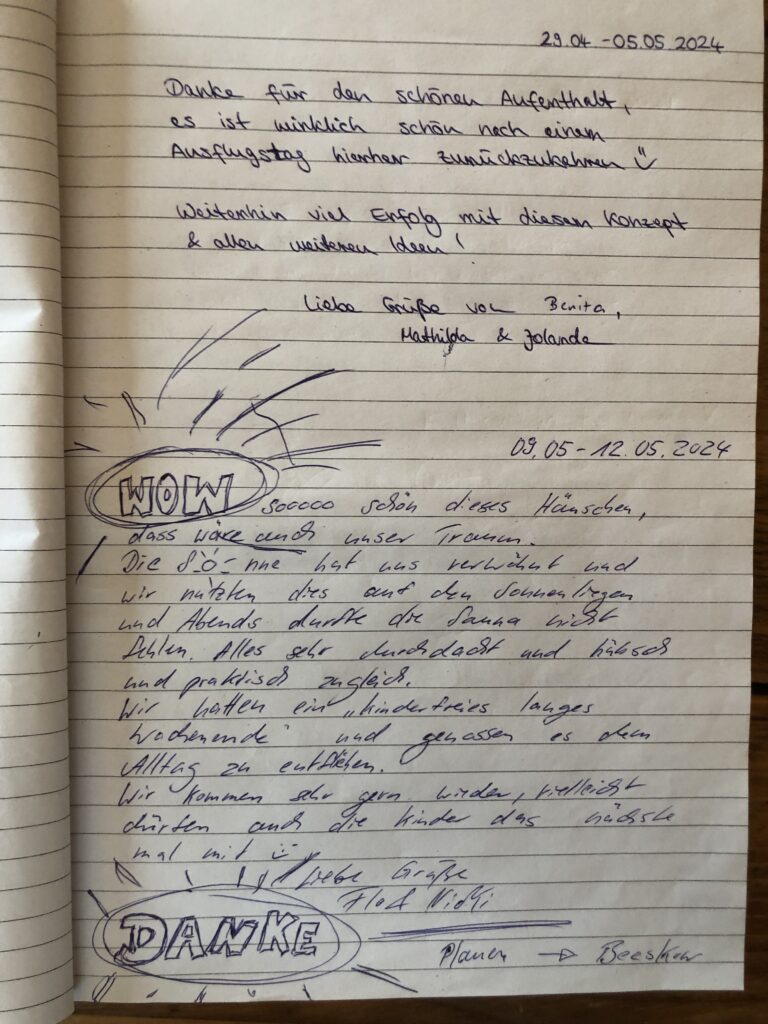 29.04. - 05.05.2024
Danke für den schönen Aufenthalt,
es ist wirklich schön nach einem
Ausflugstag hierher zurückzukehren ü
Weiterhin viel Erfolg mit diesem Konzept
& allen weiteren Ideen!
Liebe Grüße von Benita,
Mathilda & Jolanda
09.05 - 12.05.2024
WOW sooooo schön dieses Häuschen,
dass wäre auch unser Traum.
Die So-nne hat uns verwöhnt und
wir nutzten dies auf den Sonnenliegen
und Abends durfte die Sauna nicht
fehlen. Alles sehr durchdacht und hübsch
und praktisch zugleich.
Wir hatten ein „kinderfreies langes
Wochenende" und genossen es dem
Alltag zu entfliehen.
Wir kommen sehr gern wieder, vielleicht
dürfen auch die Kinder das nächste
mal mit ü
Liebe Grüße
Nicki
DANKE
Plauen → Beeskow